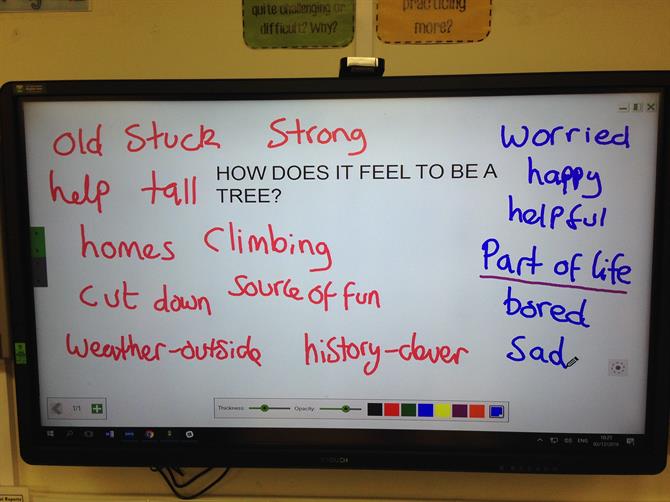 quite challenging or
difficult? Why?
practicing
more?
old Stuck Strong
help tall
HOW DOES IT FEEL TO BE A
TREE?
homes Climbing
cut down Source of fun
weather-outside history-clever
worried
happy
helpful
Part of life
bored
Sad
1/1
Thickness:
Opacity:
ENG
10:21